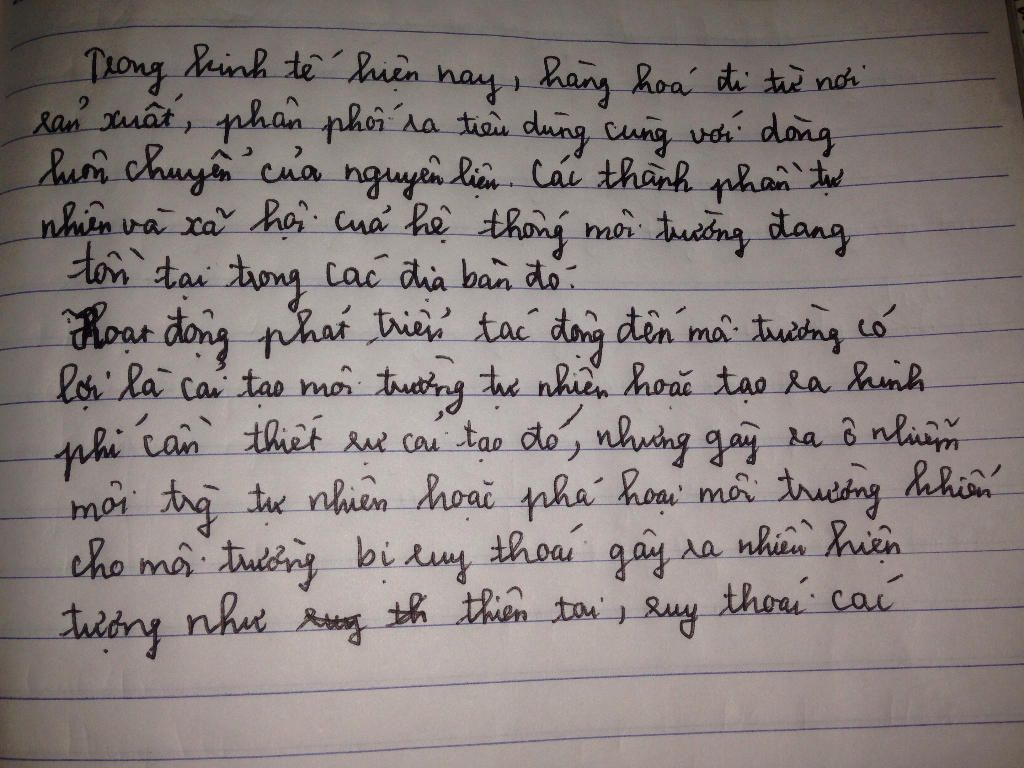 Trong kinh tế hiện nay, hàng hoá đi từ nơi
sản xuất, phân phối ra tiêu dùng cùng với dòng
luôn chuyển của nguyên liệu. Các thành phần tự
nhiên và xã hội của hệ thống môi trường đang
tồn tại trong các địa bàn đó.
Hoạt động phát triển tác động đến môi trường có
lợi là cải tạo môi trường tự nhiên hoặc tạo ra kinh
phí cần thiết sự cải tạo đó, nhưng gây ra ô nhiễm
môi trg tự nhiên hoặc phá hoại môi trường khiến
cho môi trường bị suy thoái gây ra nhiều hiện
tượng như thiên tai, suy thoái các